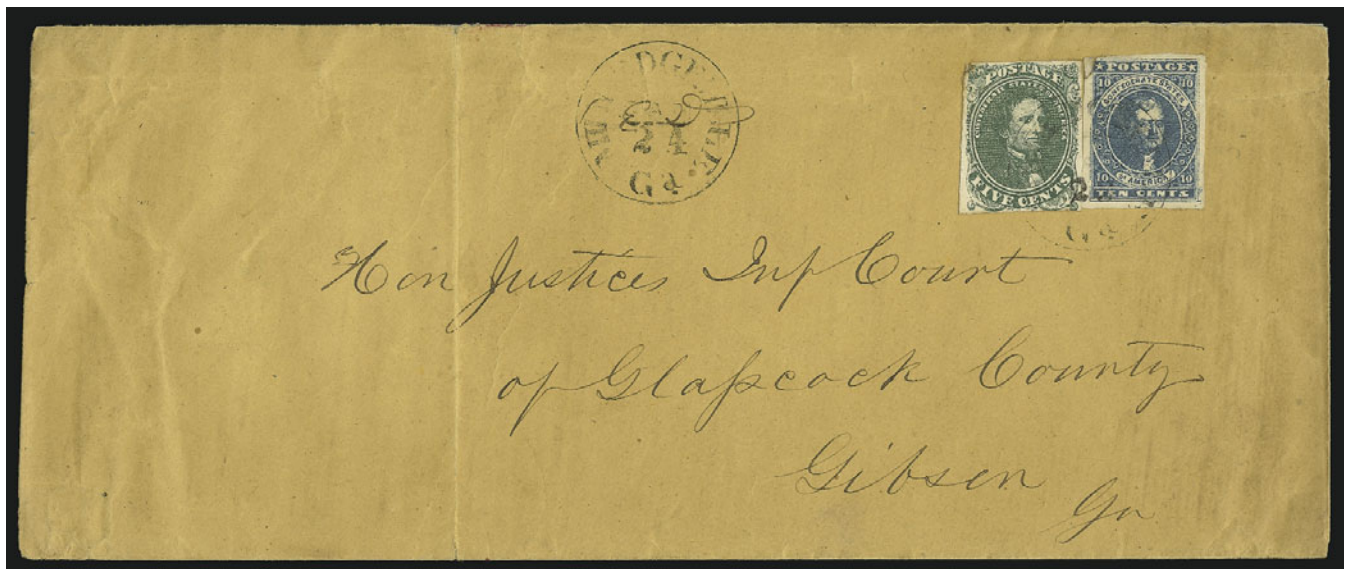 MILLEDGEVILLE.
24
Ga.
POSTAGE
CONFEDERATE STATES OF AMERICA
FIVE CENTS
POSTAGE
10 10
CONFEDERATE STATES
OF AMERICA
10 10
TEN CENTS
2
Ga
Hon Justices Inf Court
of Glaſscock County
Gibson
Ga